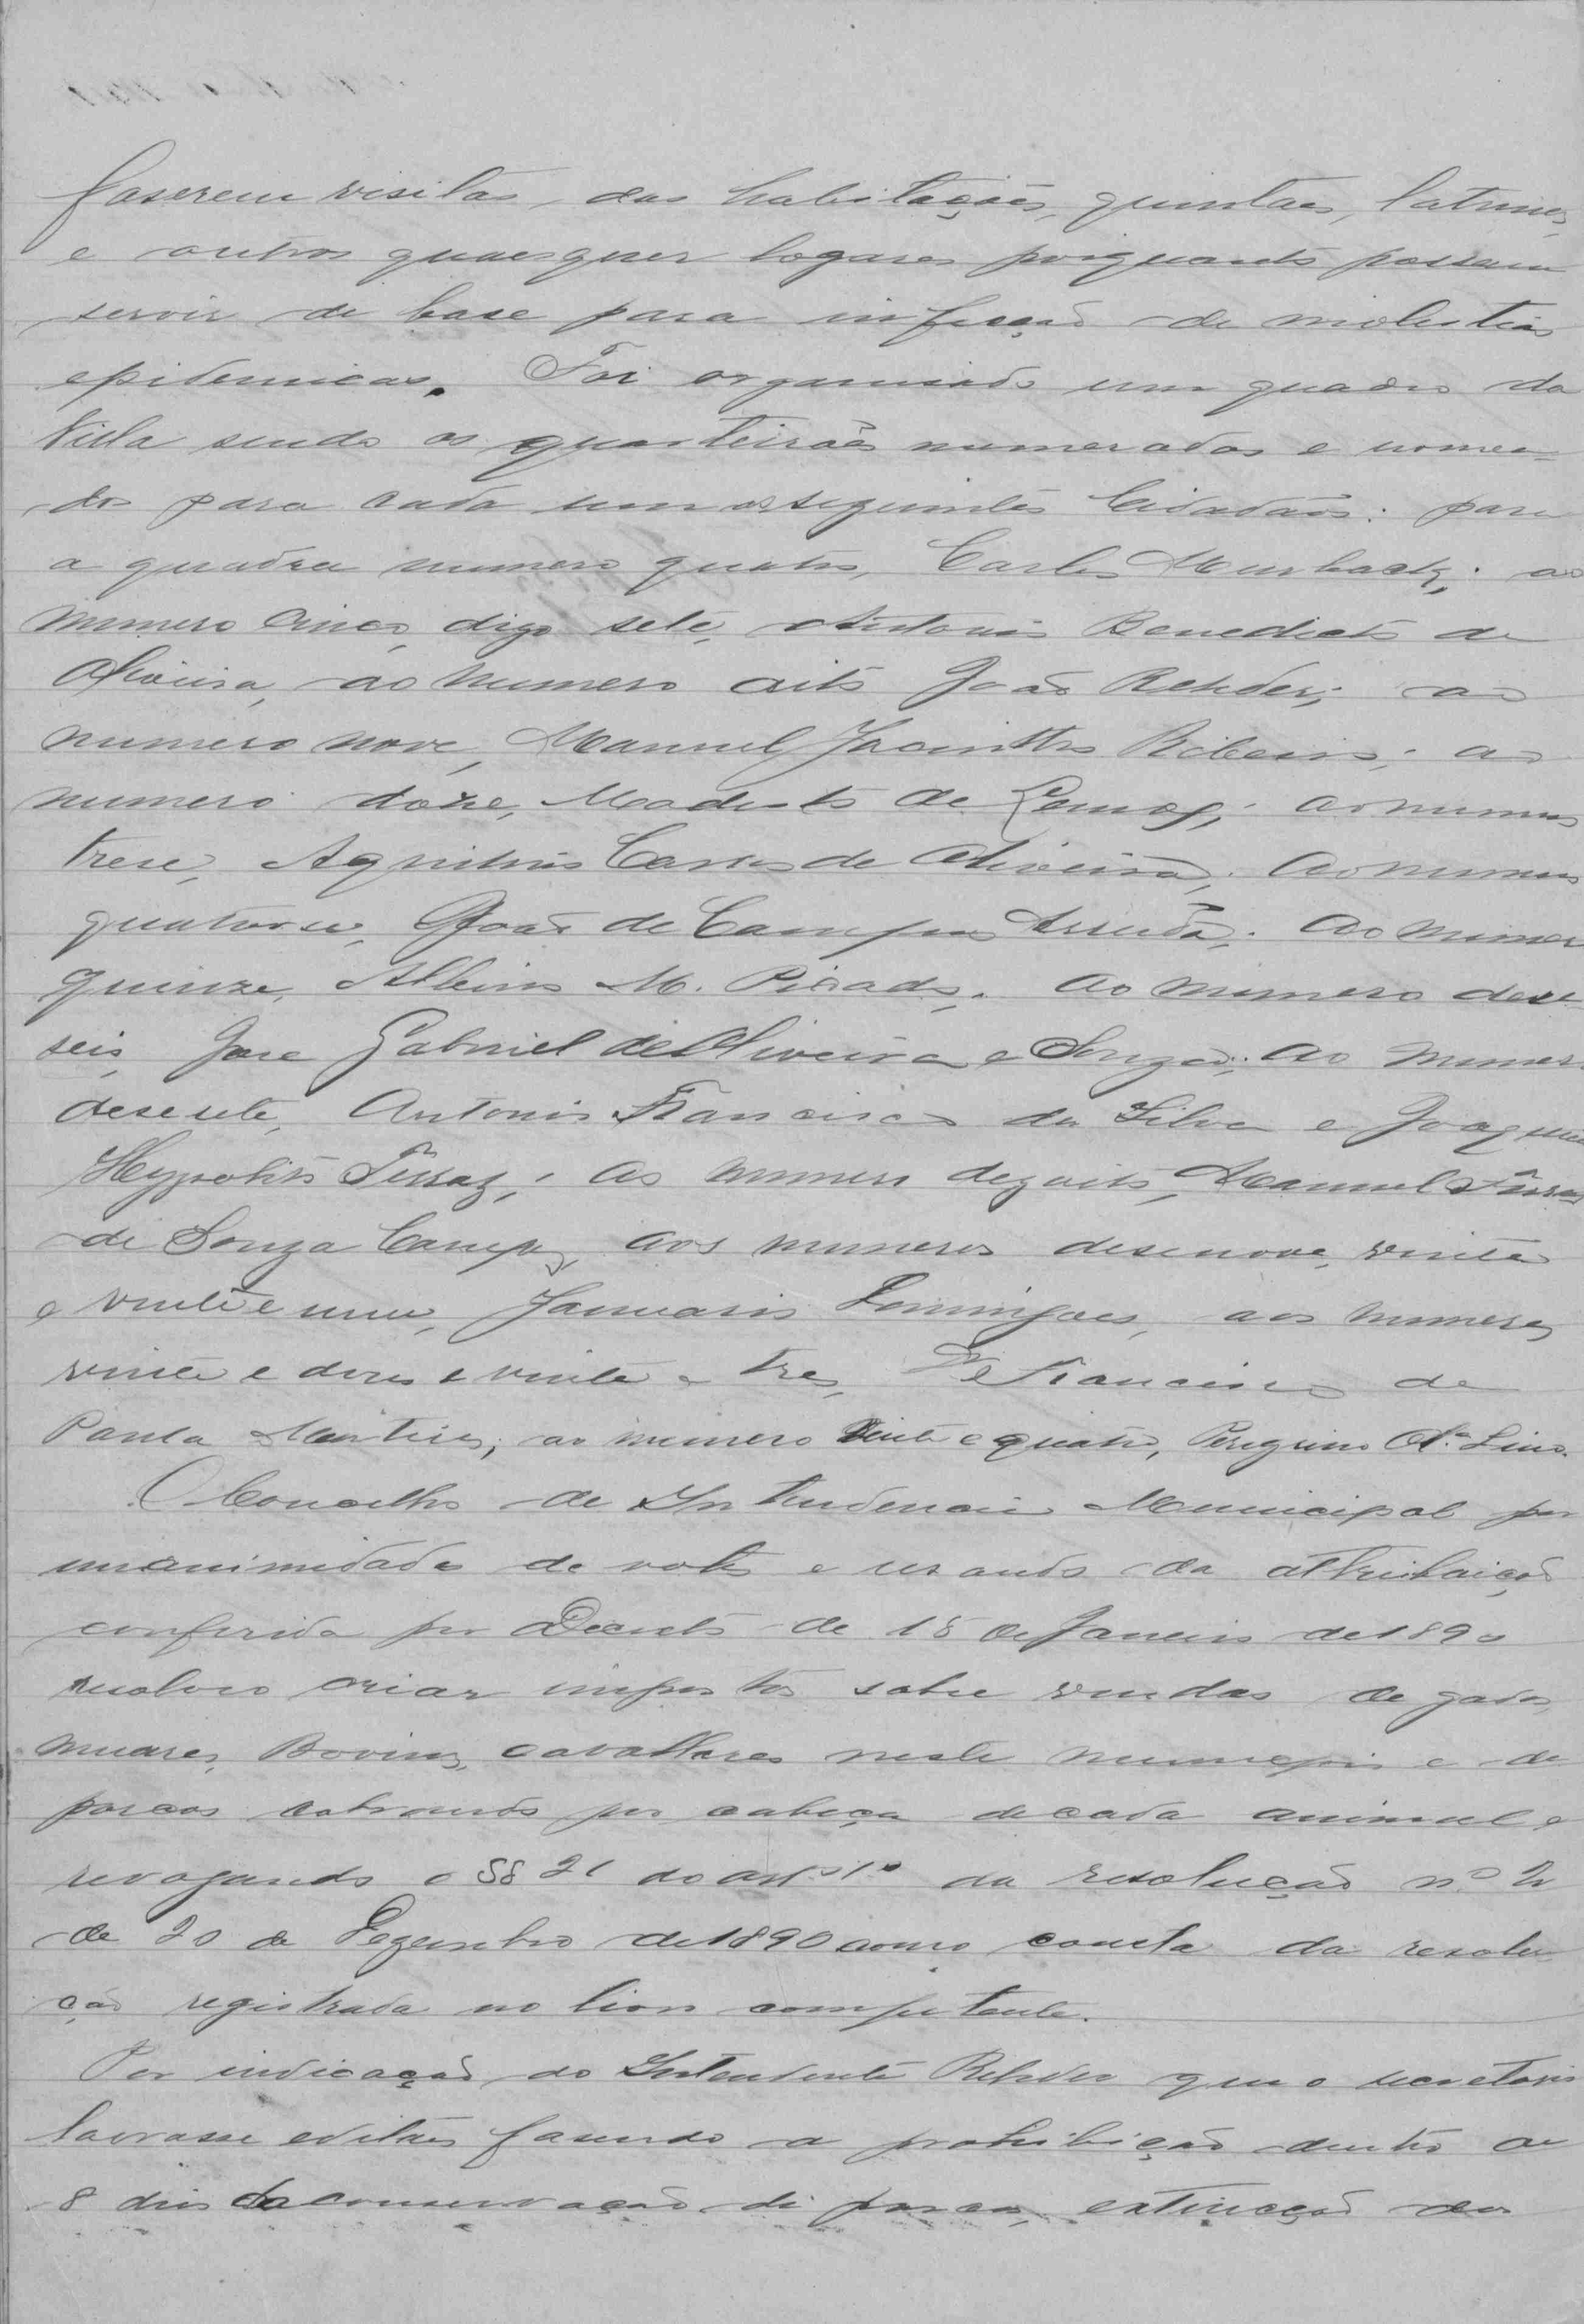 faserem visitas, das habitações, quintaes, latrinas,
e outros quaesquer logares porquanto possam
servir de base para infecção de molestias
epidemicas. Foi organisado um quadro da
Villa sendo os quarteirões numerados e nomea=
dos para cada um os seguintes Cidadãos: para
a quadra numero quatro, Carlos; ao
numero cinco, digo sete, Antonio Benedicto de
Oliveira, ao numero oito João Rehder; ao
numero nove, Manuel Jacintho Ribeiro; ao
numero doze, Modesto de Lemos; ao numero
trese, Carlos de Oliveira; ao numero
quatorse, João de Campos Arruda; ao numero
quinze, Albino M. Picado; ao numero dese-
seis, Jose Gabriel de Oliveira e Souza; ao numero
desesete, Antonio Francisco da Silva e Joaquim
Hypolito Ferraz; ao numero dezoito, Manuel Ferraz
de Souza Campos, aos numeros desenove, vinte
e vinte e um, Januario Domingues, aos numeros
vinte e dois e vinte e tres, Dr Francisco de
Paula; ao numero vinte e quatro, Peregrino Lino.
O Concelho de Intendencia Municipal por
unanimidade de votos e usando da attribuição
conferida por Decreto de 15 de Janeiro de 1890
resolveo criar impostos sobre vendas de gados,
muares, Bovinos, cavallares neste municipio e de
porcos cobrando por cabeça de cada animal e
revogando o §§ 21 do artº 1º da resolução nº 2
de 20 de Dezembro de 1890 como consta da resolu-
ção registrada no livro competente.
Por indicação do Intendente Rehder que o secretario
lavrasse editaes fasendo a prohibição dentro de
8 dias da conservação de porcos, extincção das